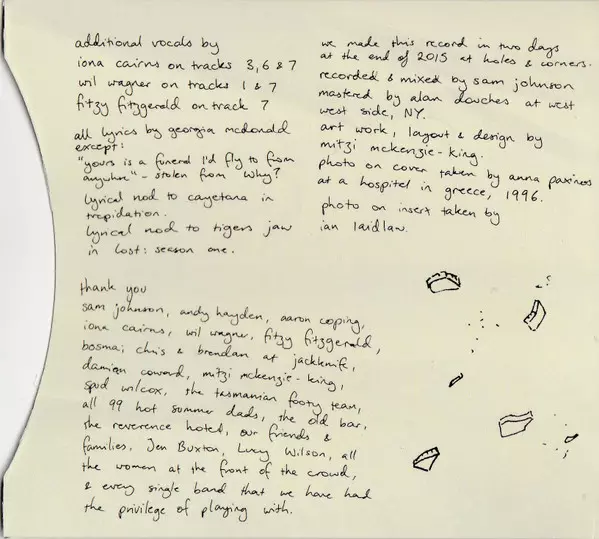 additional vocals by
iona cairns on tracks 3, 6 & 7
wil wagner on tracks 1 & 7
fitzy fitzgerald on track 7
all lyrics by georgia mcdonald
except:
"yours is a funeral I'd fly to from
anywhere" - stolen from Why?
lyrical nod to cayetana in
trepidation.
lyrical nod to tigers jaw
in lost: season one.
we made this record in two days
at the end of 2015 at holes & corners.
recorded & mixed by sam johnson
mastered by alan douches at west
west side, NY.
art work, layout & design by
mitzi mckenzie-king.
photo on cover taken by anna paxinos
at a hospital in greece, 1996.
photo on insert taken by
ian laidlaw.
thank you
sam johnson, andy hayden, aaron coping,
iona cairns, wil wagner, fitzy fitzgerald,
bosma, chris & brendan at jackknife,
damian coward, mitzi mckenzie-king,
spud wilcox, the tasmanian footy team,
all 99 hot summer dads, the old bar,
the reverence hotel, our friends &
families, Jen Buxton, Lucy Wilson, all
the women at the front of the crowd,
& every single band that we have had
the privilege of playing with.